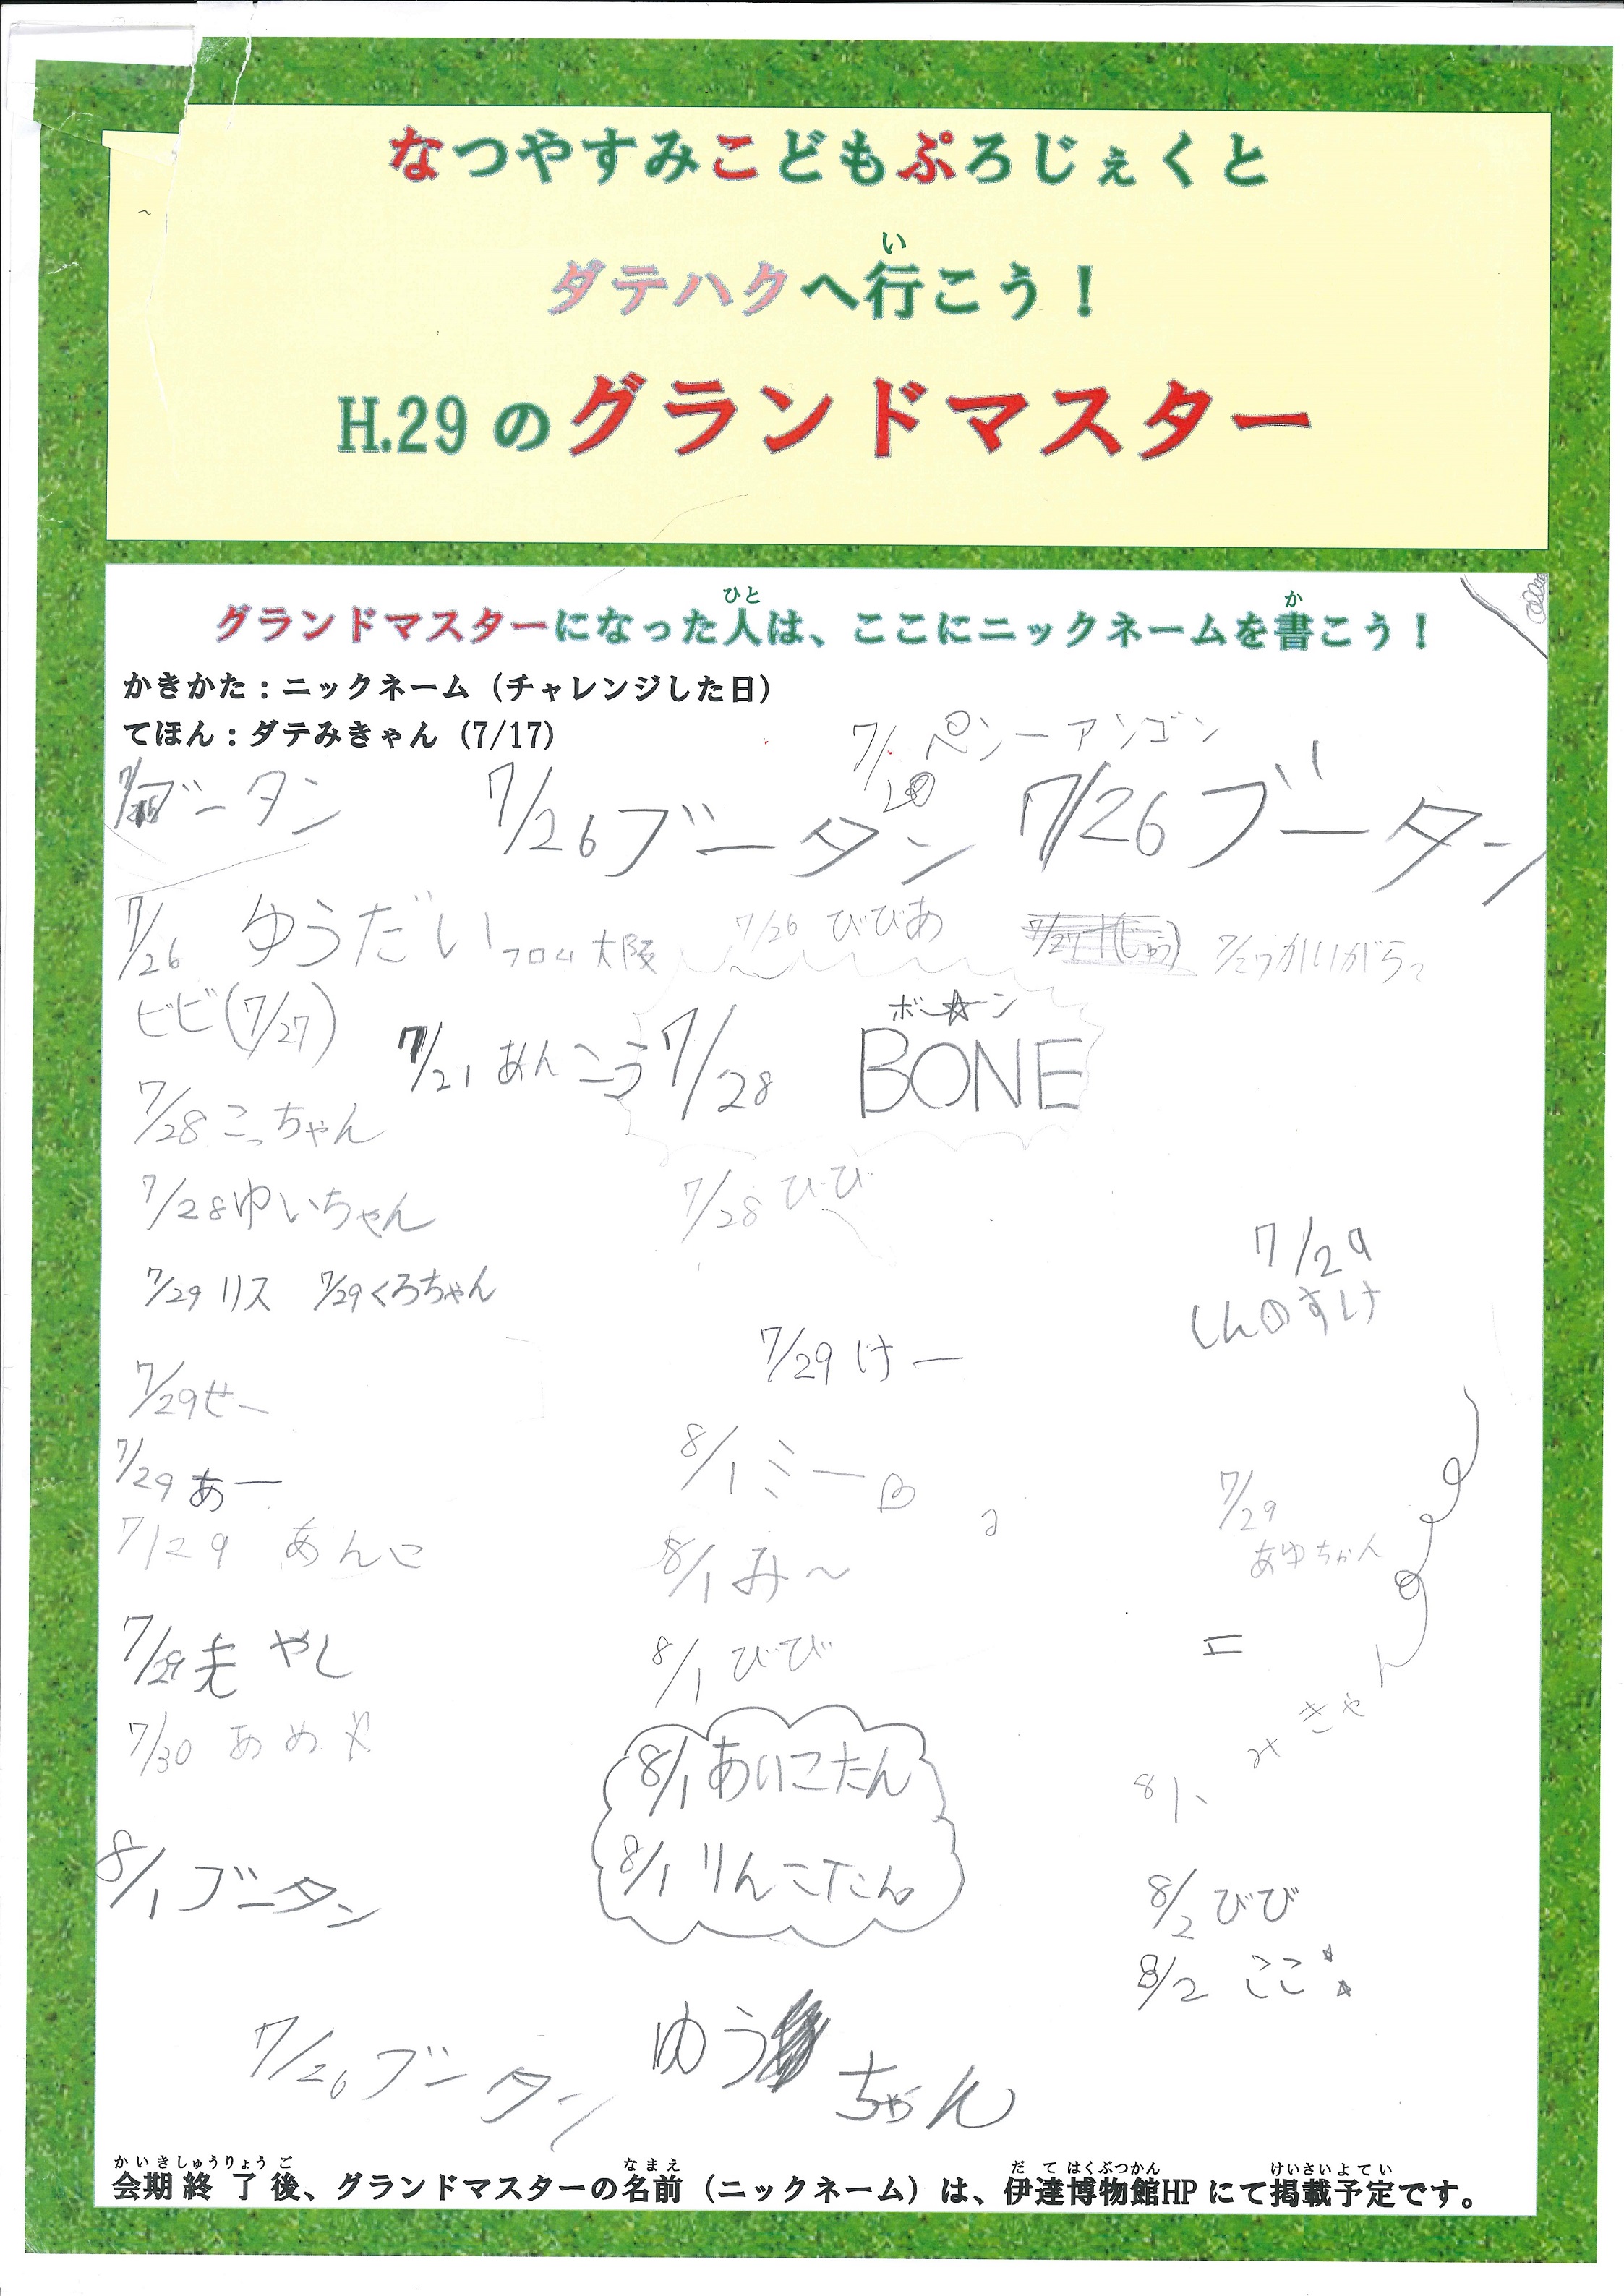 なつやすみこどもぷろじぇくと
ダテハクへ行こう！
い
H.29のグランドマスター
グランドマスターになった人は、ここにニックネームを書こう！
ひと
か
かきかた：ニックネーム（チャレンジした日）
てほん：ダテみきゃん（7/17）
7/20 ペンーアンゴン
7/26 ブータン
7/26 ブータン
7/26 ブータン
7/26 ゆうだい フロム大阪
7/26 びびあ
7/27
ビビ(7/27)
7/21 あんこう
7/28 ボーン
BONE
7/28 こっちゃん
7/28 ゆいちゃん
7/28 びび
7/29 リス
7/29 くろちゃん
7/29
しんのすけ
7/29 けー
7/29 せー
7/29 あー
8/1 ミー
7/29
あゆちゃん
7/29 あんこ
8/1 み～
7/29 もやし
8/1 びび
7/30 あめ
8/1 あいこたん
8/1 りんこたん
8/1 みきゃん
8/1 ブータン
8/2 びび
8/2 ここ
7/26 ブータン
ゆう ちゃん
かいきしゅうりょうご
なまえ
だてはくぶつかん
けいさいよてい
会期終了後、グランドマスターの名前（ニックネーム）は、伊達博物館HPにて掲載予定です。